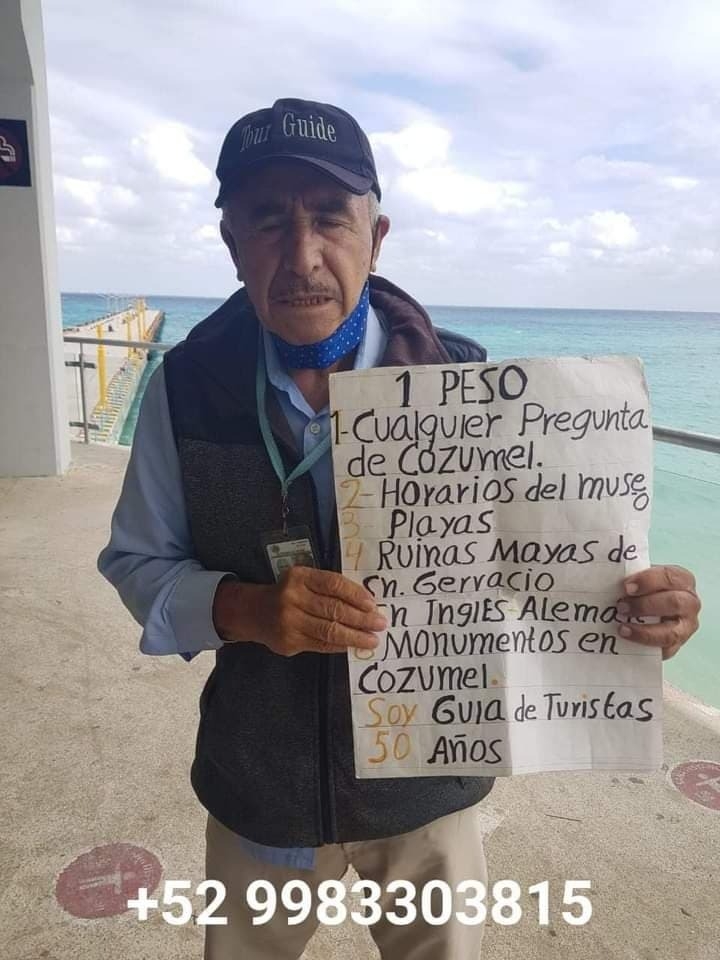 Tour Guide
1 PESO
1-Cualquier Pregunta
de Cozumel.
2- Horarios del museo
3 Playas
4 Ruinas Mayas de
Sn. Gervacio
En Ingles-Aleman
6 Monumentos en
Cozumel.
Soy Guia de Turistas
50 Años
+52 9983303815